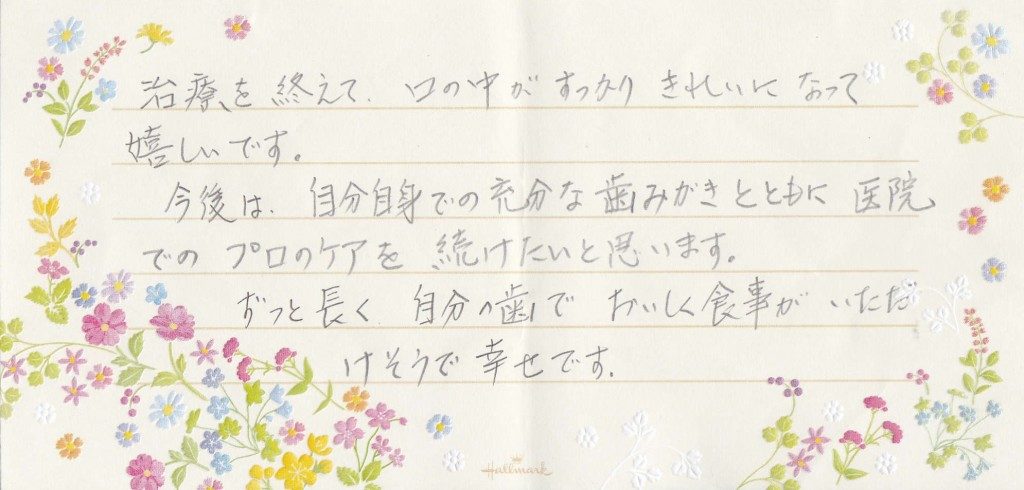 治療を終えて、口の中がすっかりきれいになって
嬉しいです。
今後は、自分自身での充分な歯みがきとともに医院
でのプロのケアを続けたいと思います。
ずっと長く自分の歯でおいしく食事がいただ
けそうで幸せです。
Hallmark